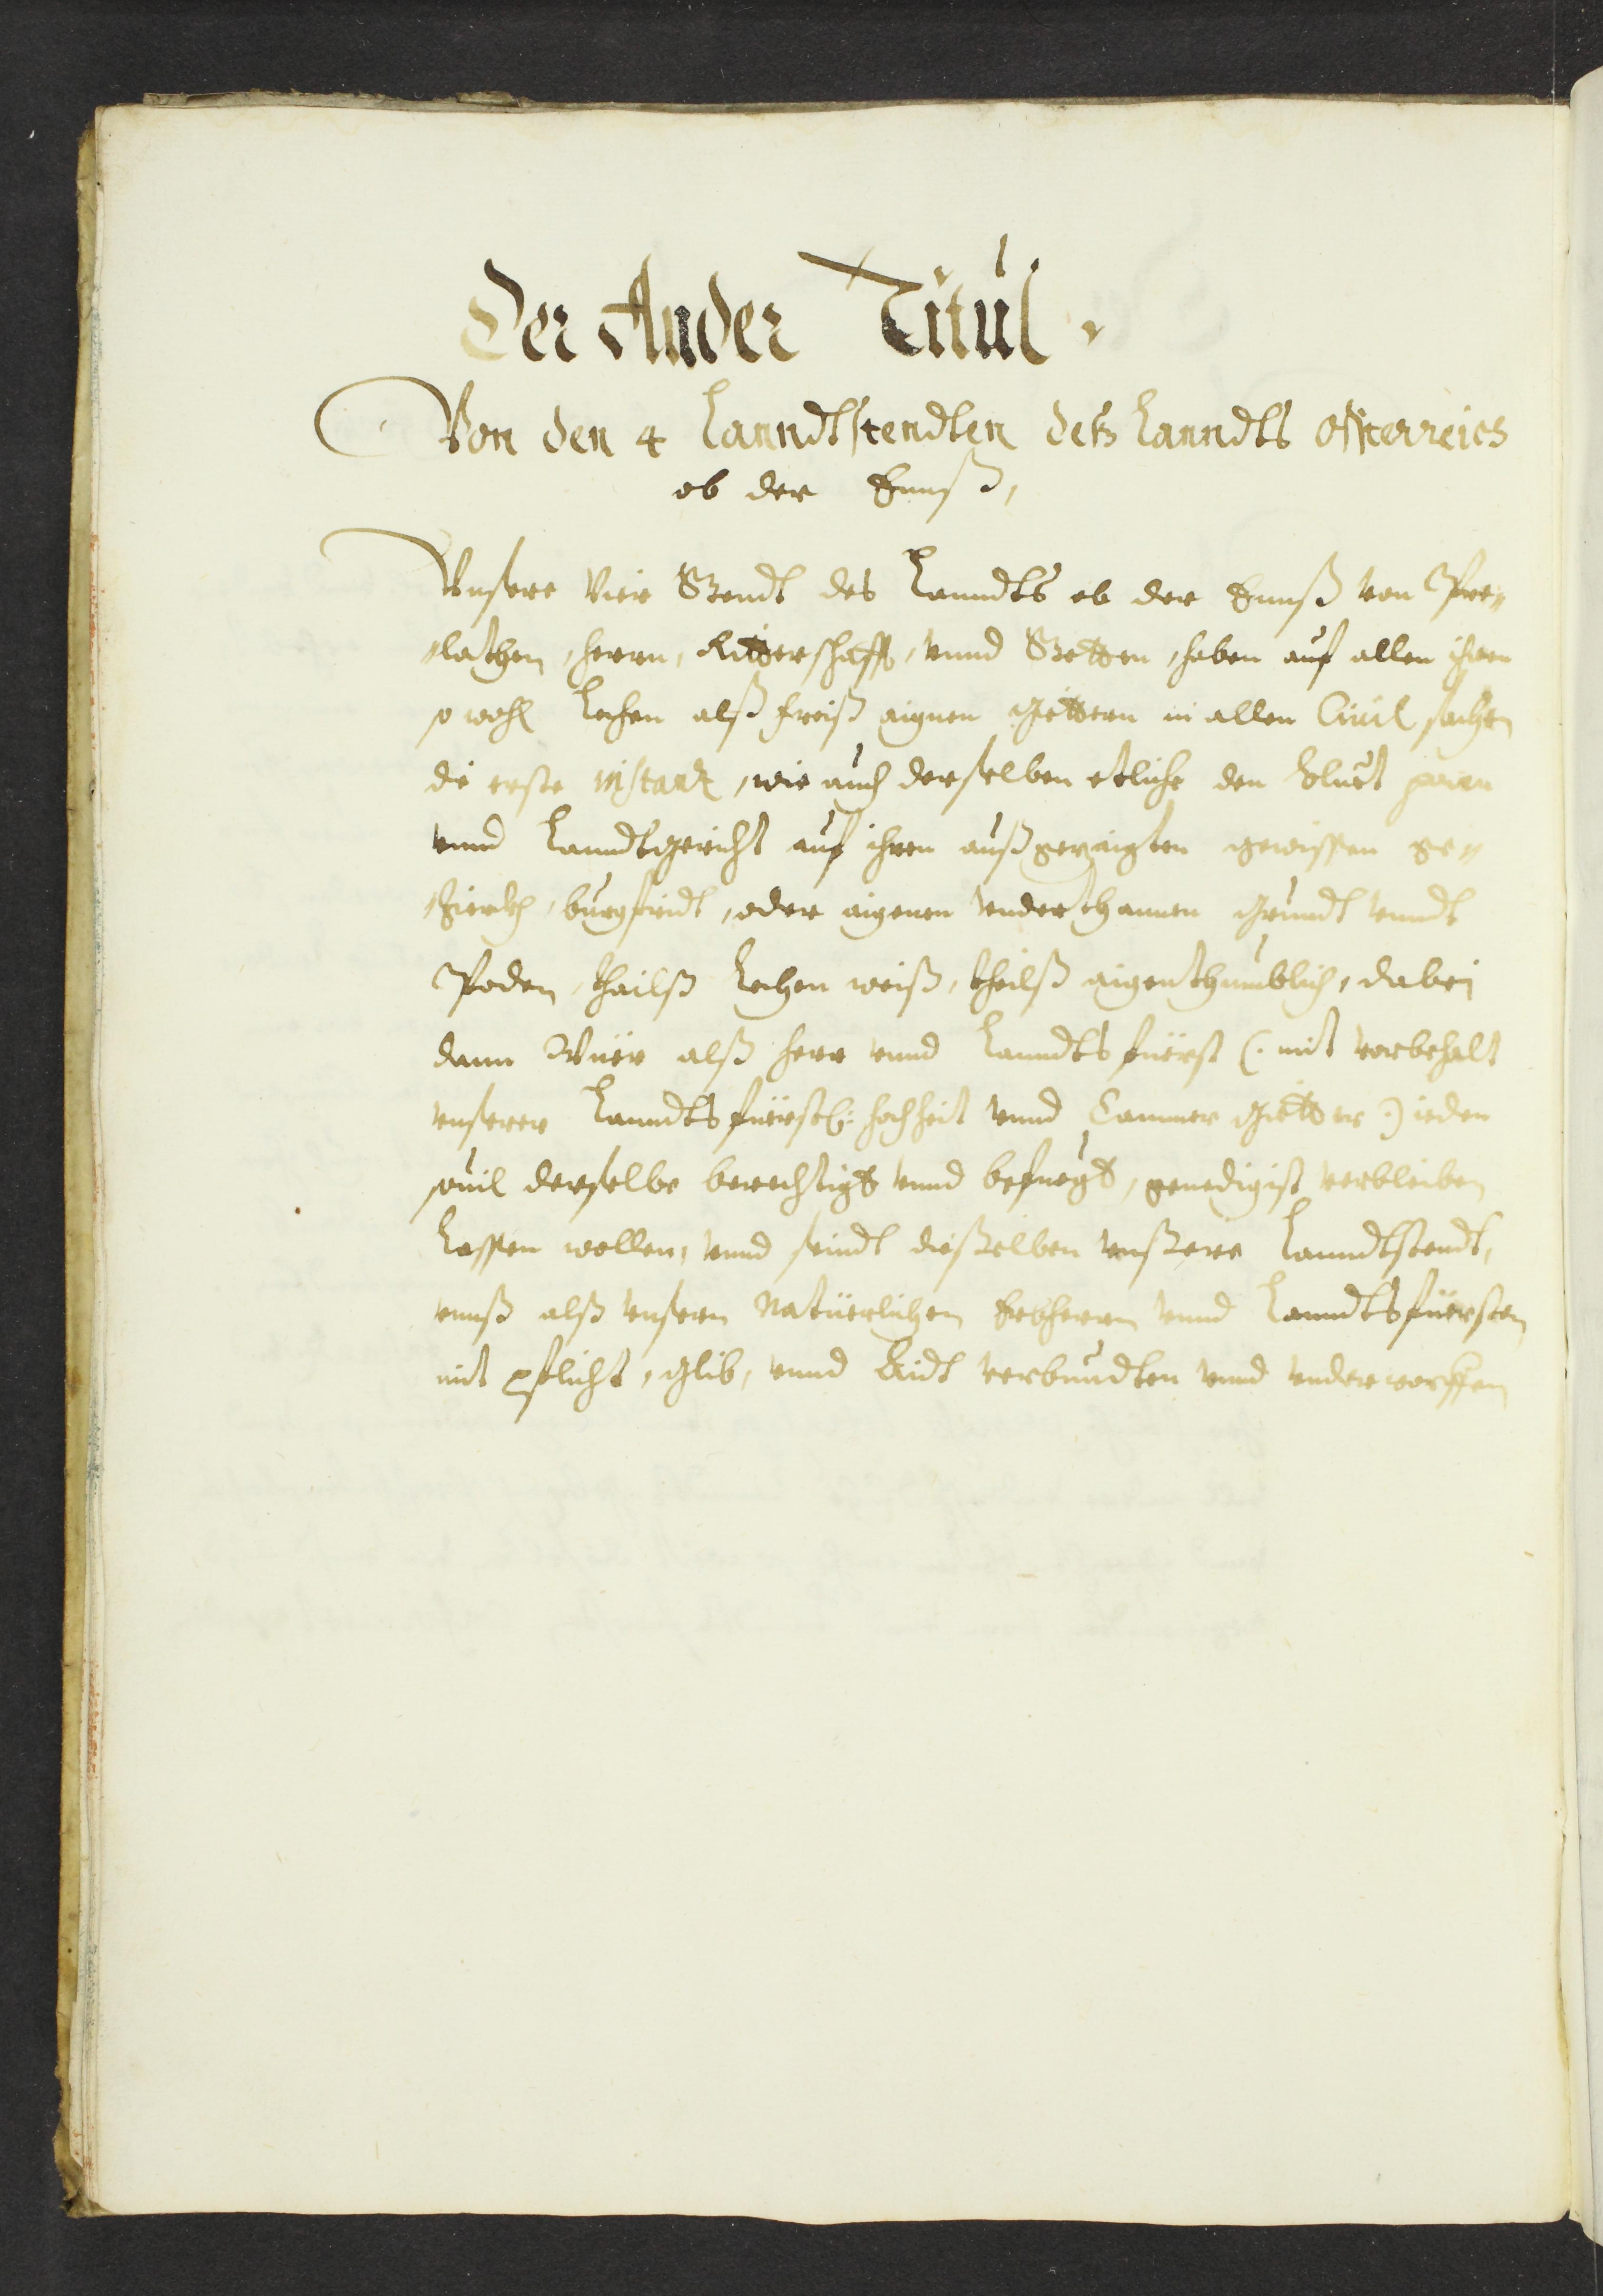 Der Ander Titul
Von den 4 Lanndtstendten deß Lanndts Ossterreich
ob der Ennß,
Vnsere Vier Stendt des Lanndts ob der Ennß von Pre„
„lathen, herrn, Ritterschafft, vnnd Stetten, haben auf allen ihren
sowohl Lechen alß freiß aignen Guettern in allen Ciuil sachen
die erste instantz, wie auch derselben etliche den bluet pann
vnnd Lanndtgericht auf ihren außgezaigten gewissen ge„
„zierckh, burgfridt, oder aigenen vnderthannen Grundt vnndt
Poden, thailß Lechen weiß, theilß aigenthumblich, dabei
dann Wüer alß herr vnnd Lanndtsfüerst (: mit vorbehalt
vnserer Lanndtsfüerstl: hochheit vnnd Cammer Güetter :) ieden
souil derselbe berechtigt vnnd befuegt, genedigist verbleiben
Lassen wollen, vnnd seindt dießelben vnßere Lanndtstendt,
vnnß alß vnsern Natüerlichen Erbherrn vnnd Lanndtsfüersten
mit pflicht, Glib, vnnd Aidt verbundten vnnd vnderworffen